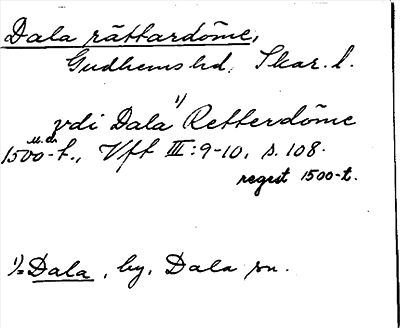 Dala rättardöme,
Gudhems hd. Skar. l.
vdi Dala 1) Retterdöme
1500-t., Vft III:9-10, s. 108.
regist 1500-t.
1)=Dala, by, Dala sn.